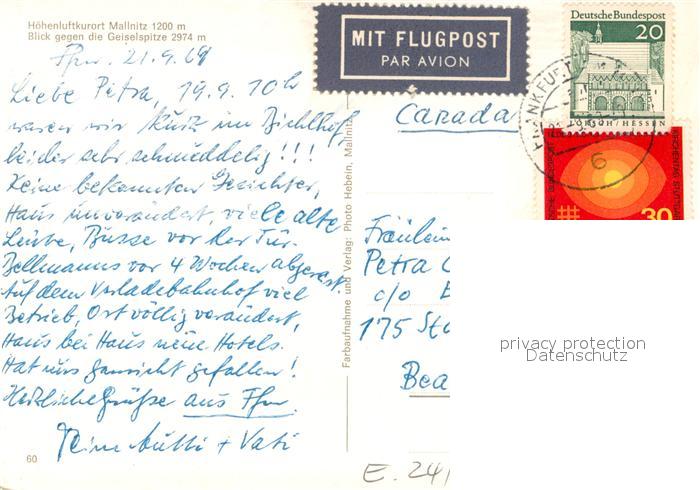 Höhenluftkurort Mallnitz 1200 m
Blick gegen die Geiselspitze 2974 m
Ffm. 21.9.69
Liebe Petra, 19.9. 10h
waren wir kurz im Bichlhof
leider sehr schmuddelig!!!
Keine bekannten Gesichter,
Haus unverändert, viele alte
Leute, Busse vor der Tür.
Bellmanns vor 4 Wochen abgereist
Auf dem Verladebahnhof viel
Betrieb, Ort völlig verändert,
Haus bei Haus neue Hotels.
Hat uns garnicht gefallen!
Herzliche Grüße aus Ffm.
Deine Mutti + Vati
60
Farbaufnahme und Verlag: Photo Hebein, Mallnitz
MIT FLUGPOST
PAR AVION
Deutsche Bundespost
20
LORSCH/HESSEN
FRANKFURT
6
DEUTSCHE BUNDESPOST
KIRCHENTAG STUTTGART
30
Canada
Fräulein
Petra
c/o
175
Bea
privacy protection
Datenschutz
E. 241